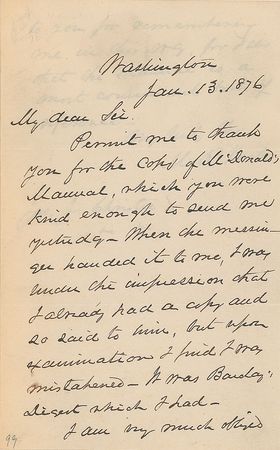 Washington
Jan. 13. 1876
My dear Sir.
Permit me to thank
you for the copy of McDonald's
Manual, which you were
kind enough to send me
yesterday - When the messen-
ger handed it to me, I was
under the impression that
I already had a copy and
so said to him, but upon
examination I find I was
mistakened - It was Barclay's
Digest which I had -
I am very much obliged
99